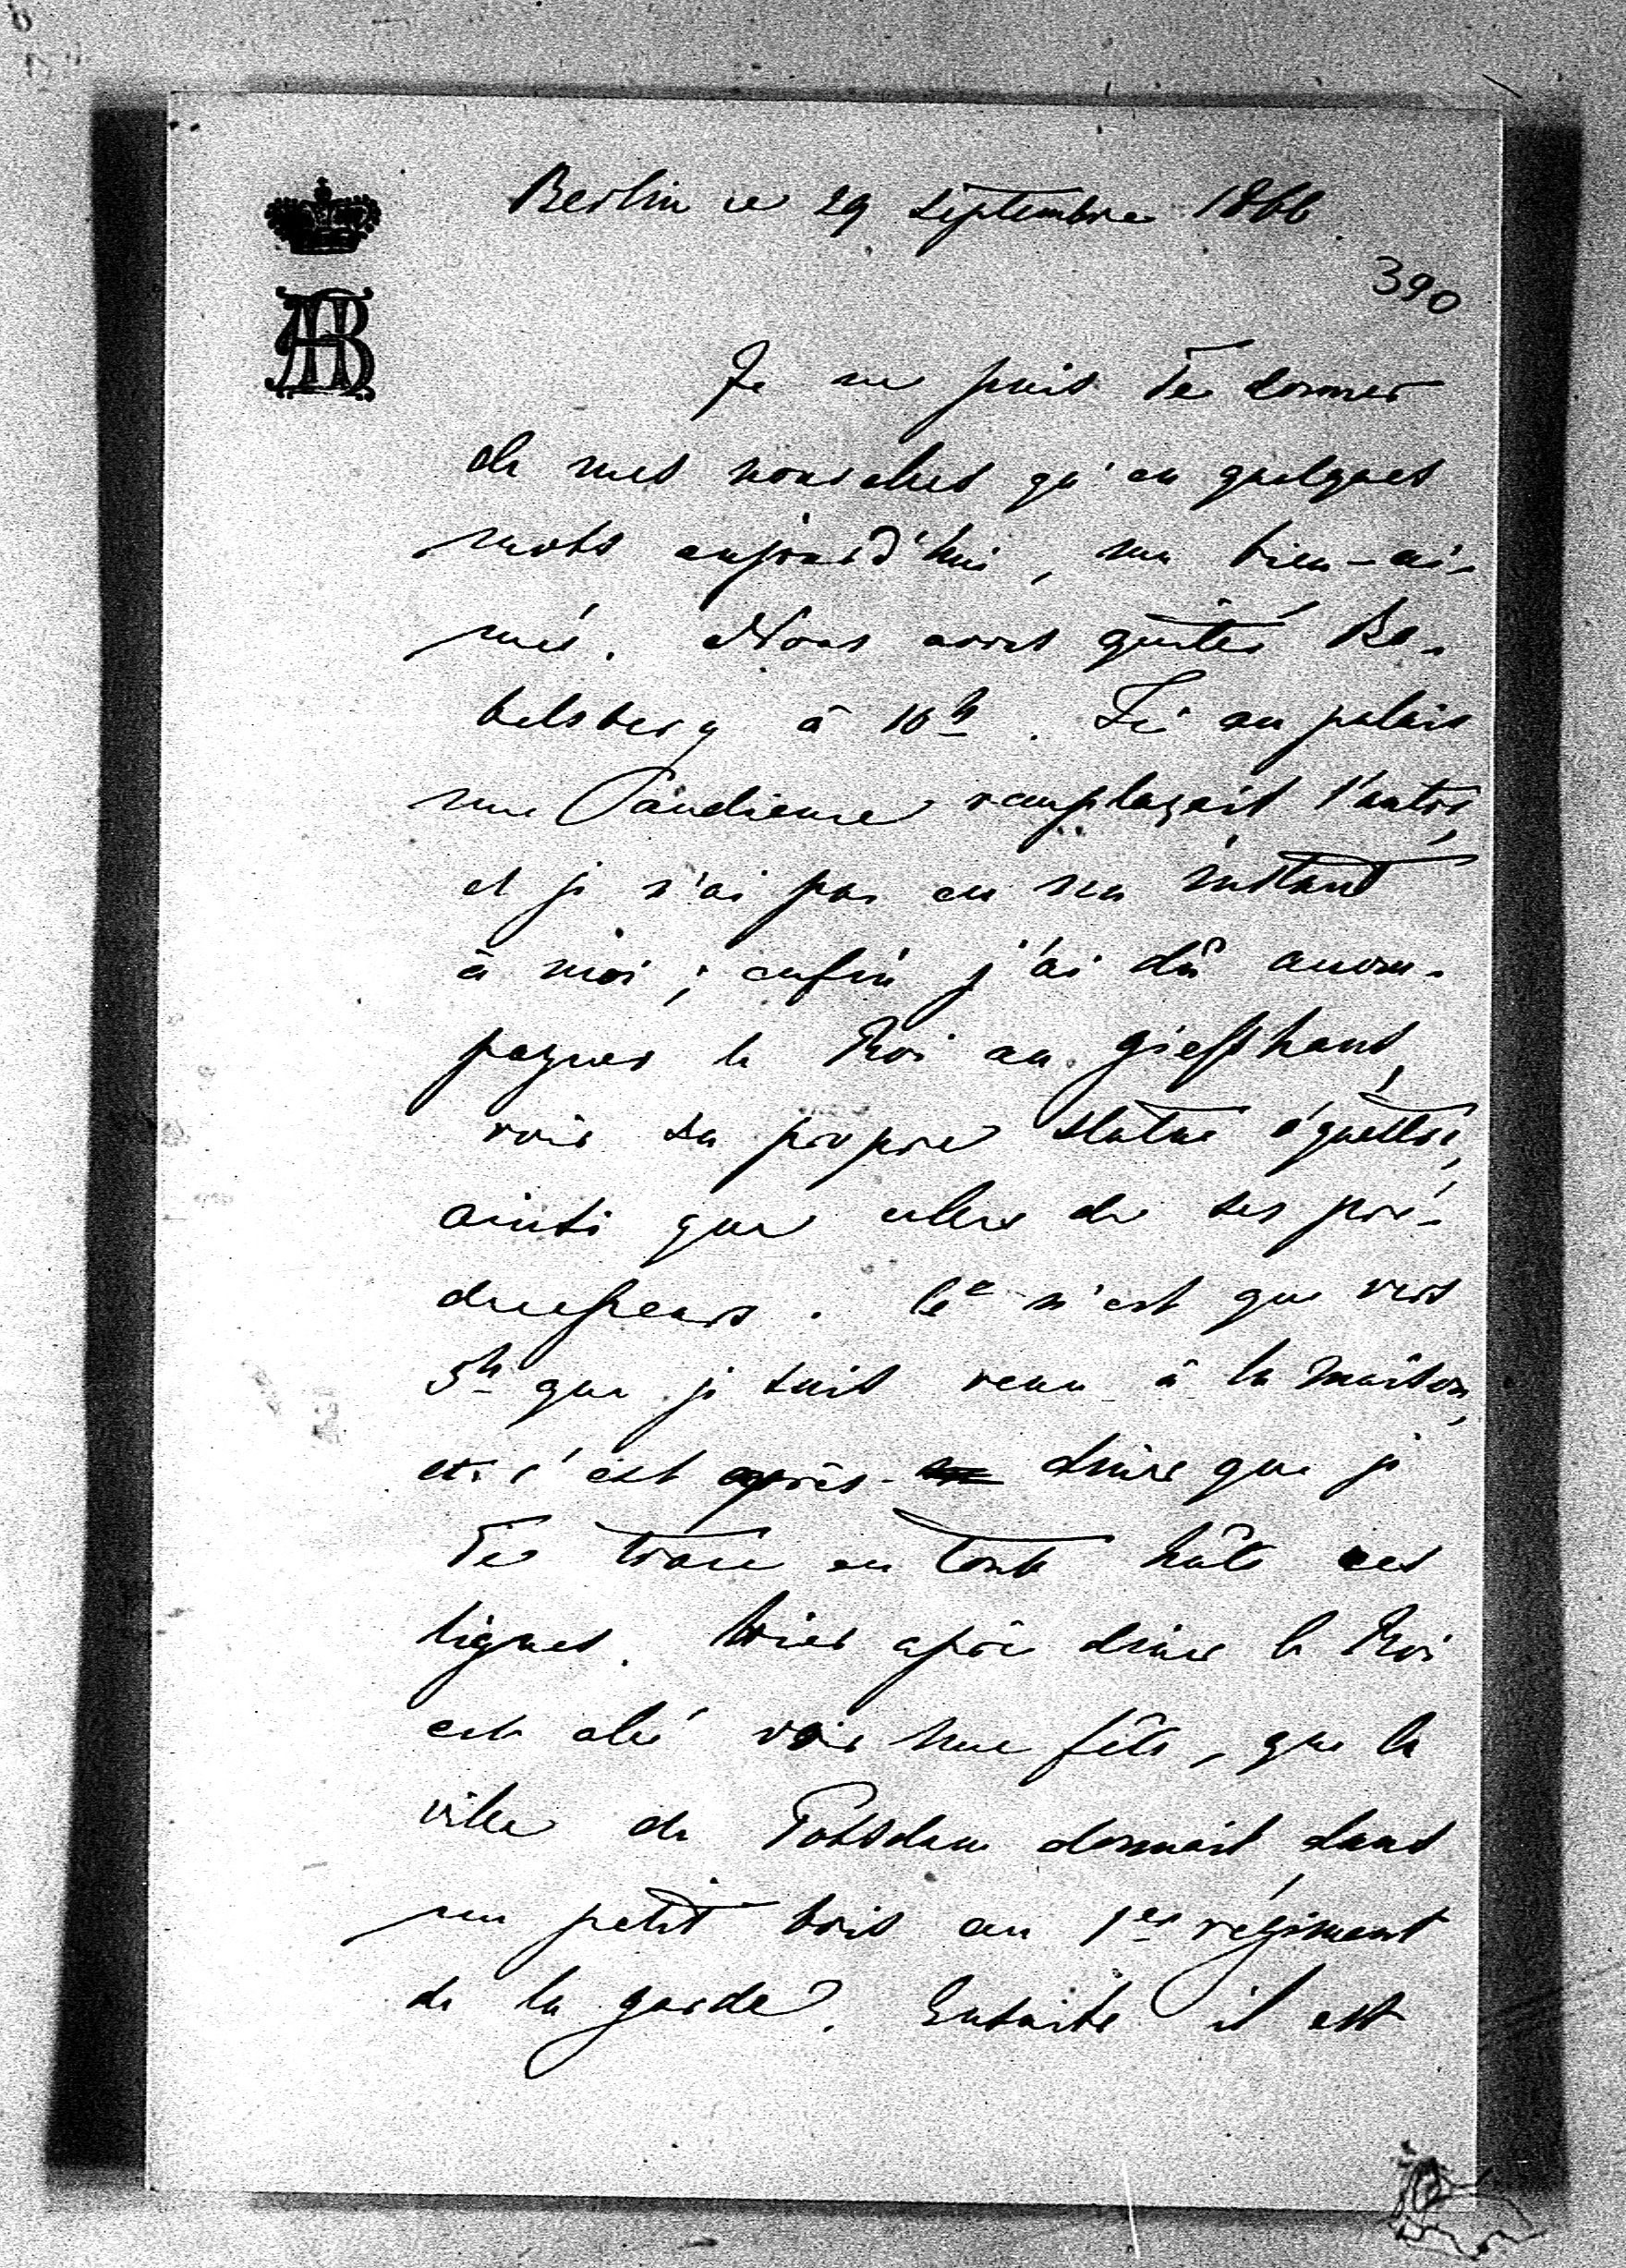 Berlin ce 29 septembre 1866
390
Je ne puis Te donner
de mes nouvelles qu'en quelques
mots aujourd'hui, ma bien-ai-
mée. Nous avons quitté Ba-
belsberg à 10h. Ici au palais
une audience remplaçait l'autre,
et je n'ai pas eu un instant
à moi; enfin j'ai dû accom-
pagner le Roi au gießhaus,
voir sa propre statue équestre,
ainsi que celle de ses pré-
decesseurs. Ce n'est que vers
5h que je suis venu à la maison,
et c'est après dîner que je
Te trace en toute hâte ces
lignes. Hier après dîner le Roi
est allé voir une fête, que la
ville de Potsdam donnait dans
un petit bois au 1er régiment
de la garde. Ensuite il est